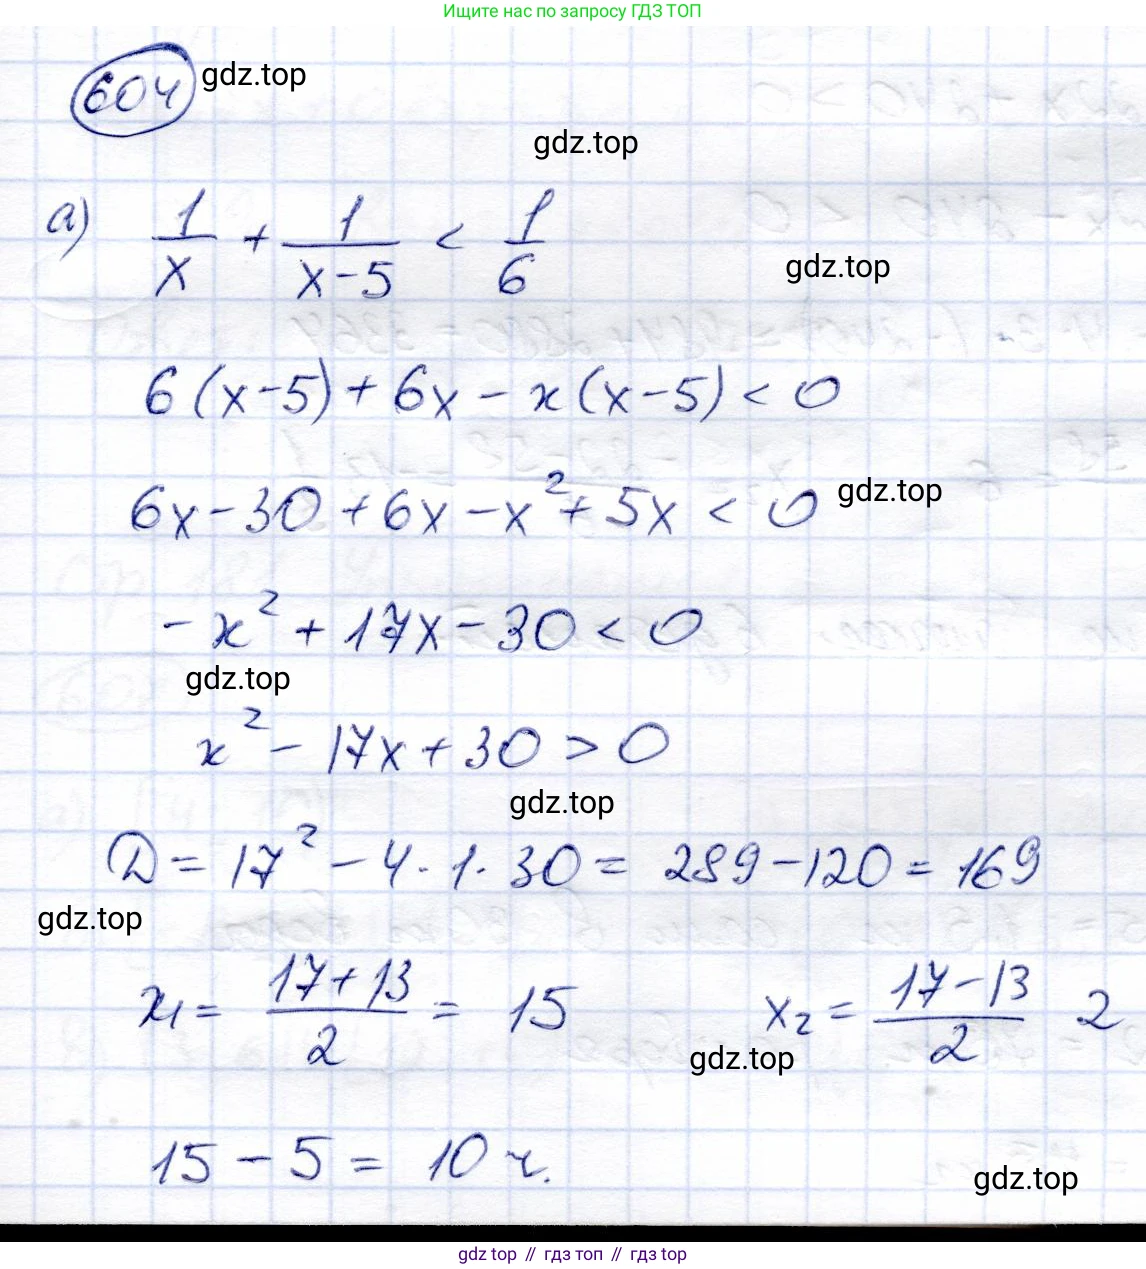 Ищите нас по запросу ГДЗ ТОП
604 gdz.top
gdz.top
а) 1/x + 1/(x-5) < 1/6
gdz.top
6(x-5)+6x-x(x-5)<0
6x-30+6x-x²+5x<0 gdz.top
-x²+17x-30<0
gdz.top
x²-17x+30>0
gdz.top
D=17²-4·1·30=289-120=169
gdz.top
x₁=(17+13)/2=15 x₂=(17-13)/2 2
gdz.top
15-5=10 ч.
gdz.top
gdz top // гдз топ // gdz top